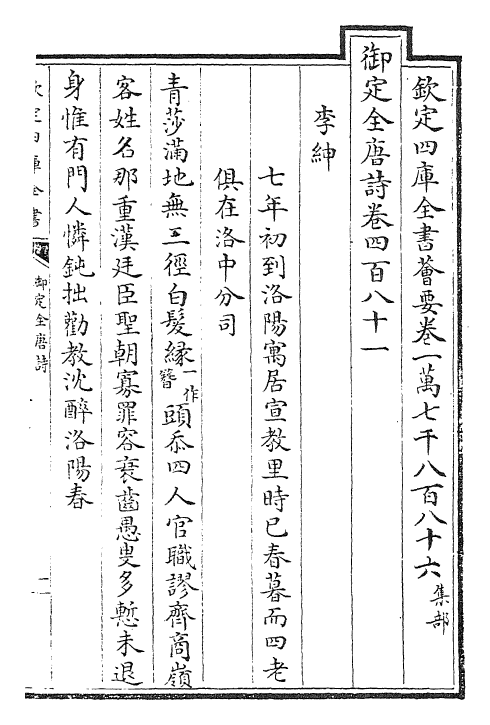 欽定四庫全書薈要卷一萬七千八百八十六 集部
御定全唐詩卷四百八十一
李紳
七年初到洛陽寓居宣教里時已春暮而四老
俱在洛中分司
青莎滿地無三徑白髮縁一作簪頭忝四人官職謬齊商嶺
客姓名那重漢廷臣聖朝寡罪容衰齒愚叟多慙未退
身惟有門人憐鈍拙勸教沈醉洛陽春
欽定四庫全書
御定全唐詩